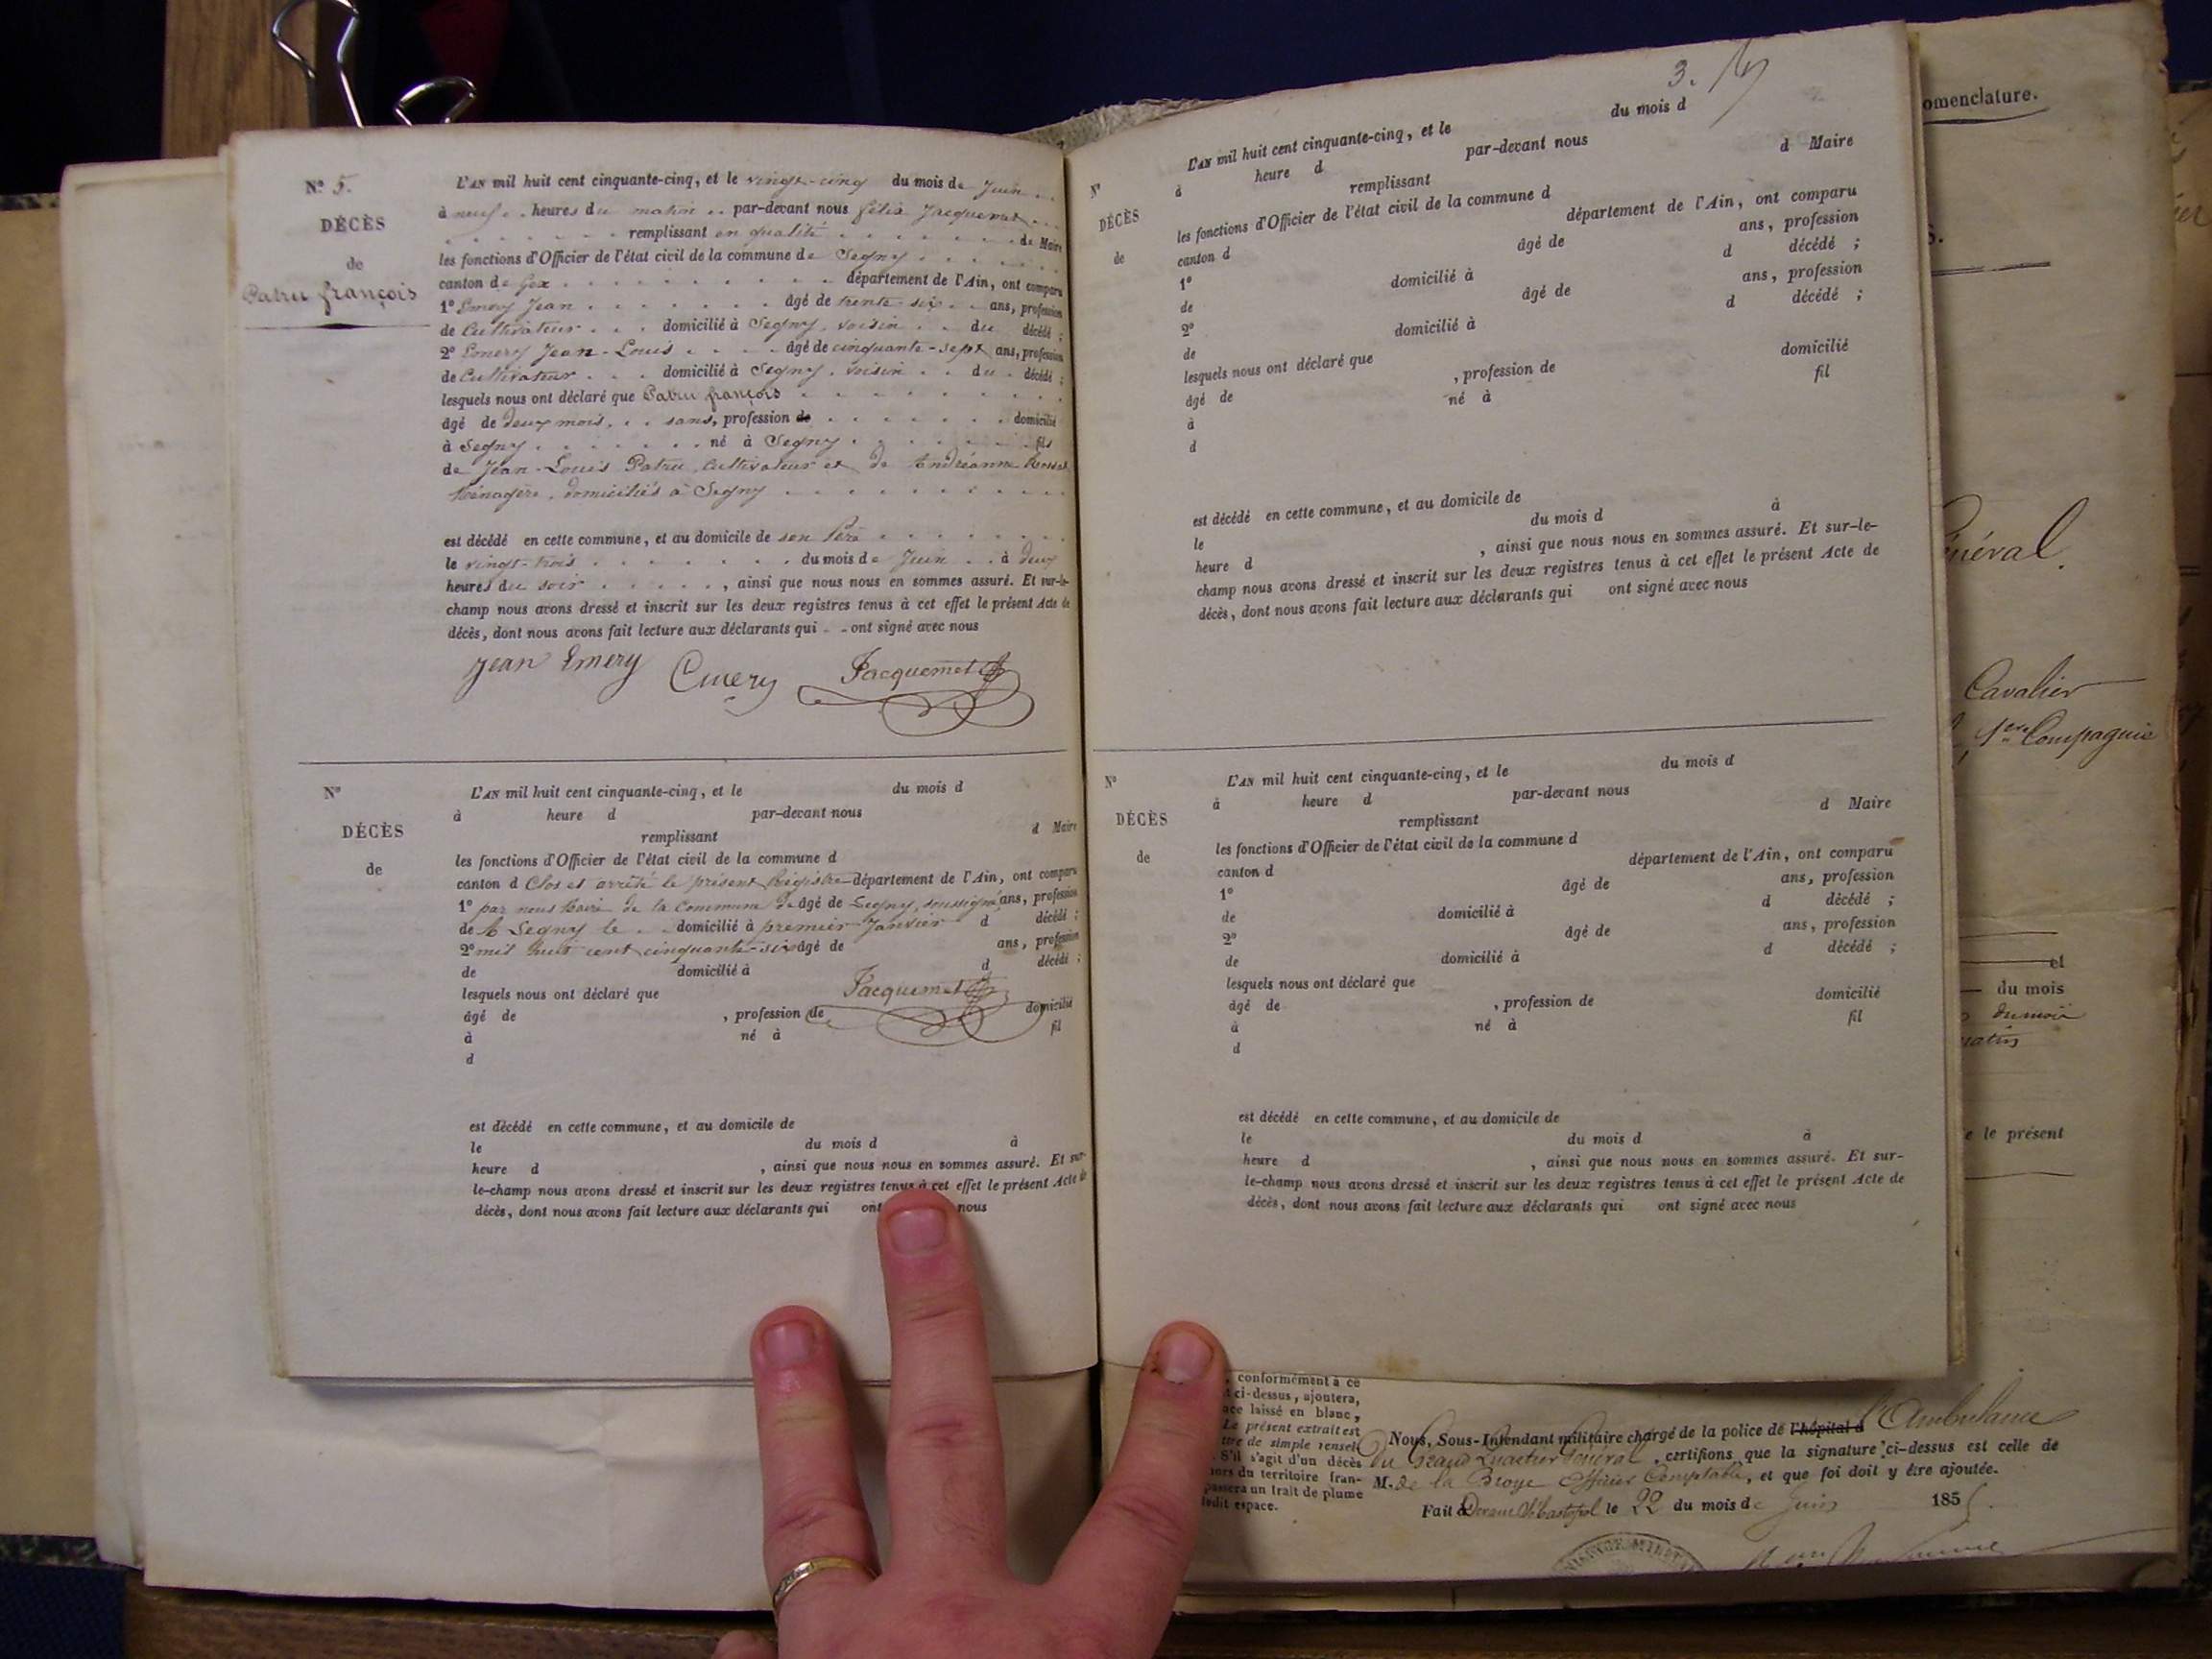 N° 5.
DÉCÈS
de
Patru françois
L'AN mil huit cent cinquante-cinq, et le vingt-cinq du mois de Juin
à neuf heures du matin par-devant nous félix Jacquemet
remplissant en qualité de Maire
les fonctions d'Officier de l'état civil de la commune de Segny
canton de Gex département de l'Ain, ont comparu
1° Emery Jean âgé de trente-six ans, profession
de Cultivateur domicilié à Segny, voisin du décédé ;
2° Emery Jean-Louis âgé de cinquante-sept ans, profession
de Cultivateur domicilié à Segny, voisin du décédé ;
lesquels nous ont déclaré que Patru françois
âgé de deux mois, sans, profession de domicilié
à Segny né à Segny fils
de Jean-Louis Patru, Cultivateur et de Andréanne
Ménagère, domiciliés à Segny
est décédé en cette commune, et au domicile de son Père
le vingt-trois du mois de Juin à deux
heures du soir, ainsi que nous nous en sommes assuré. Et sur-le-
champ nous avons dressé et inscrit sur les deux registres tenus à cet effet le présent Acte de
décès, dont nous avons fait lecture aux déclarants qui ont signé avec nous
Jean Emery Emery Jacquemet
N°
DÉCÈS
de
L'AN mil huit cent cinquante-cinq, et le du mois d
à heure d par-devant nous
remplissant d Maire
les fonctions d'Officier de l'état civil de la commune d
canton d Clos et arrêté le présent Régistre département de l'Ain, ont comparu
1° par nous Maire de la Commune de âgé de Segny, soussigné, ans, profession
de A Segny le domicilié à premier Janvier d décédé ;
2° mil huit cent cinquante-six âgé de ans, profession
de domicilié à d décédé ;
lesquels nous ont déclaré que Jacquemet
âgé de , profession de domicilié
à né à fil
d
est décédé en cette commune, et au domicile de
le du mois d à
heure d , ainsi que nous nous en sommes assuré. Et sur-
le-champ nous avons dressé et inscrit sur les deux registres tenus à cet effet le présent Acte de
décès, dont nous avons fait lecture aux déclarants qui ont nous
3.
N°
DÉCÈS
de
L'AN mil huit cent cinquante-cinq, et le du mois d
à heure d par-devant nous
remplissant d Maire
les fonctions d'Officier de l'état civil de la commune d
canton d département de l'Ain, ont comparu
1° âgé de ans, profession
de domicilié à d décédé ;
2° âgé de ans, profession
de domicilié à d décédé ;
lesquels nous ont déclaré que
âgé de , profession de domicilié
à né à fil
d
est décédé en cette commune, et au domicile de
le du mois d à
heure d , ainsi que nous nous en sommes assuré. Et sur-le-
champ nous avons dressé et inscrit sur les deux registres tenus à cet effet le présent Acte de
décès, dont nous avons fait lecture aux déclarants qui ont signé avec nous
N°
DÉCÈS
de
L'AN mil huit cent cinquante-cinq, et le du mois d
à heure d par-devant nous
remplissant d Maire
les fonctions d'Officier de l'état civil de la commune d
canton d département de l'Ain, ont comparu
1° âgé de ans, profession
de domicilié à d décédé ;
2° âgé de ans, profession
de domicilié à d décédé ;
lesquels nous ont déclaré que
âgé de , profession de domicilié
à né à fil
d
est décédé en cette commune, et au domicile de
le du mois d à
heure d , ainsi que nous nous en sommes assuré. Et sur-
le-champ nous avons dressé et inscrit sur les deux registres tenus à cet effet le présent Acte de
décès, dont nous avons fait lecture aux déclarants qui ont signé avec nous
omenclature.
énéral.
Cavalier
1ere Compagnie
et
du mois
du mois
matin
e le présent
, conformément à ce
t ci-dessus, ajoutera,
ace laissé en blanc,
Le présent extrait est
tre de simple rensei-
S'il s'agit d'un décès
hors du territoire fran-
passera un trait de plume
ledit espace.
Nous, Sous-Intendant militaire chargé de la police de l'hôpital d l'Ambulance
du Grand Quartier Général, certifions que la signature ci-dessus est celle de
M. de la Broye Officier Comptable, et que foi doit y être ajoutée.
Fait à Devant Sébastopol le 22 du mois de Juin 1855.